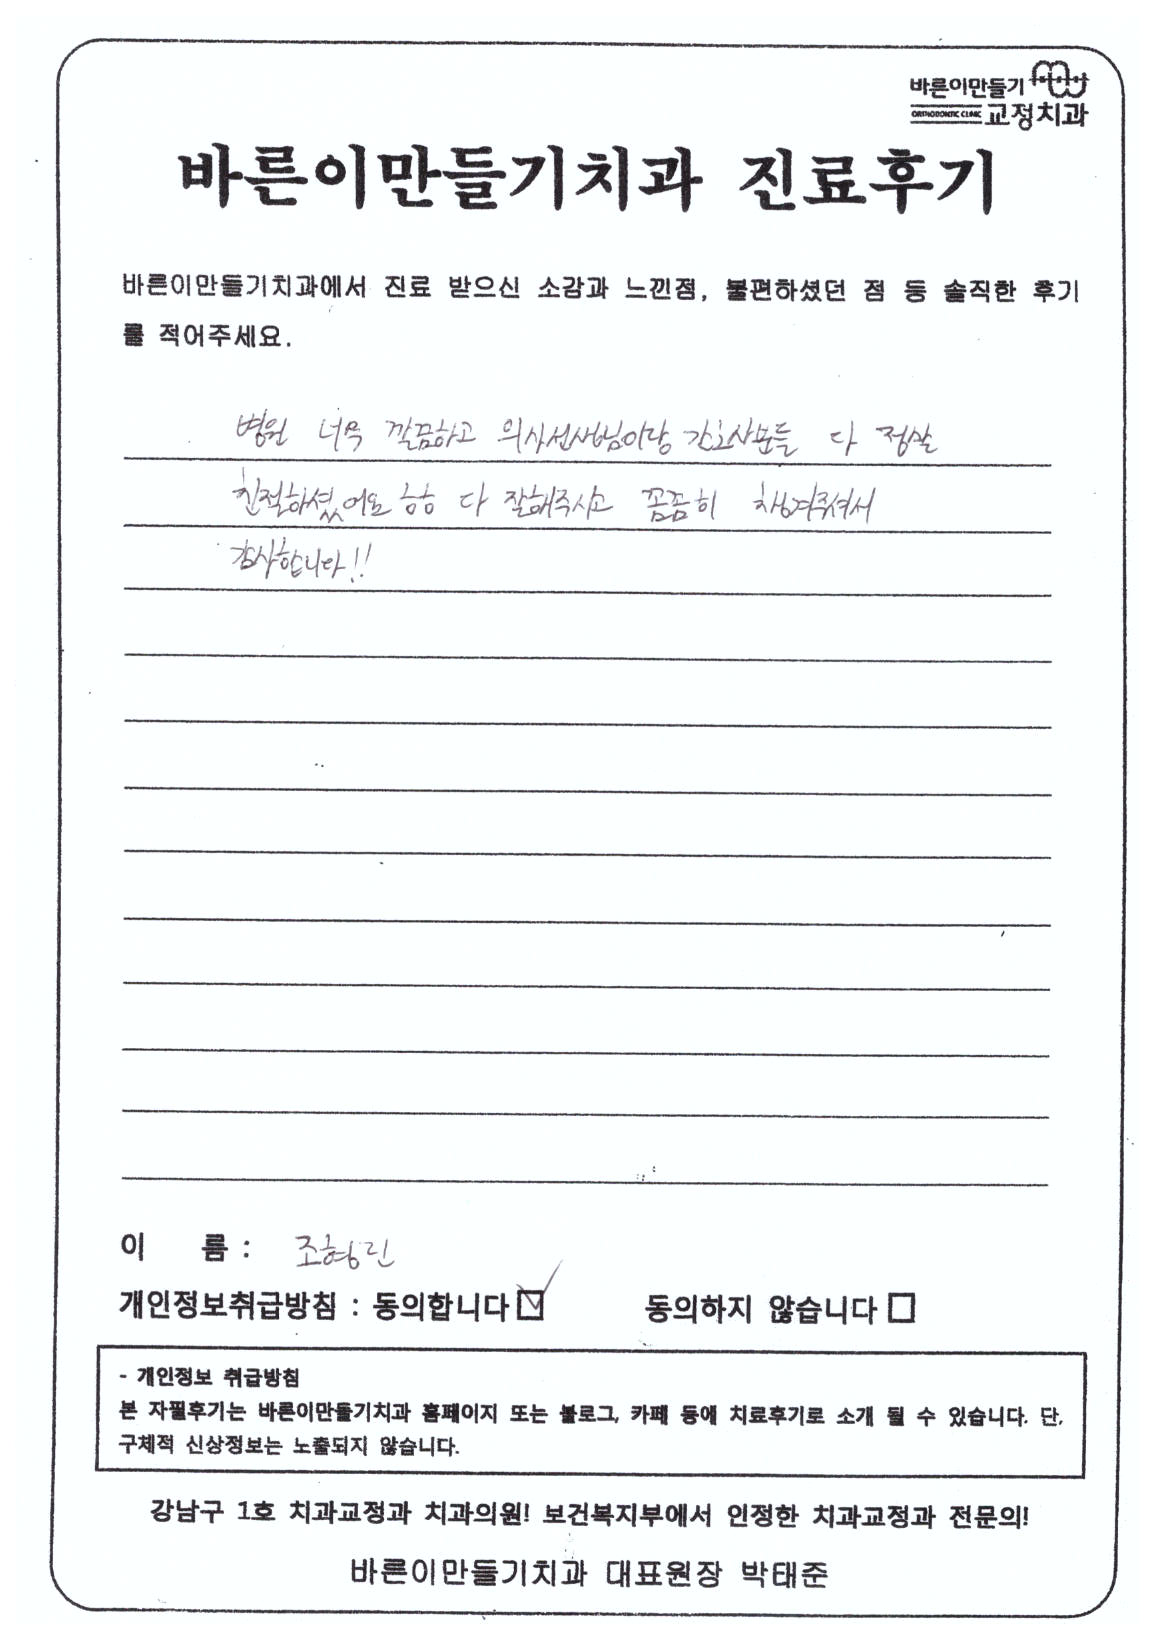 바른이만들기
ORTHODONTIC CLINIC 교정치과
바른이만들기치과 진료후기
바른이만들기치과에서 진료 받으신 소감과 느낀점, 불편하셨던 점 등 솔직한 후기
를 적어주세요.
병원 너무 깔끔하고 의사선생님이랑 간호사분들 다 정말
친절하셨어요 ㅎㅎ 다 잘해주시고 꼼꼼히 챙겨주셔서
감사합니다!!
이 름 : 조형린
개인정보취급방침 : 동의합니다 동의하지 않습니다
- 개인정보 취급방침
본 자필후기는 바른이만들기치과 홈페이지 또는 블로그, 카페 등에 치료후기로 소개 될 수 있습니다. 단,
구체적 신상정보는 노출되지 않습니다.
강남구 1호 치과교정과 치과의원! 보건복지부에서 인정한 치과교정과 전문의!
바른이만들기치과 대표원장 박태준